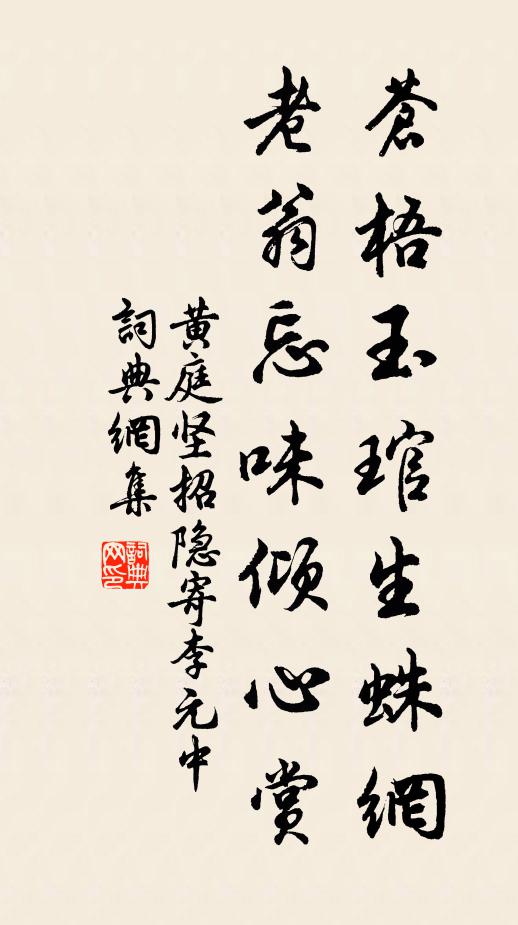 蒼梧玉琯生蛛網
老翁忘味傾心賞
黄庭坚招隐寄李元中
詞典網集
詞典网印